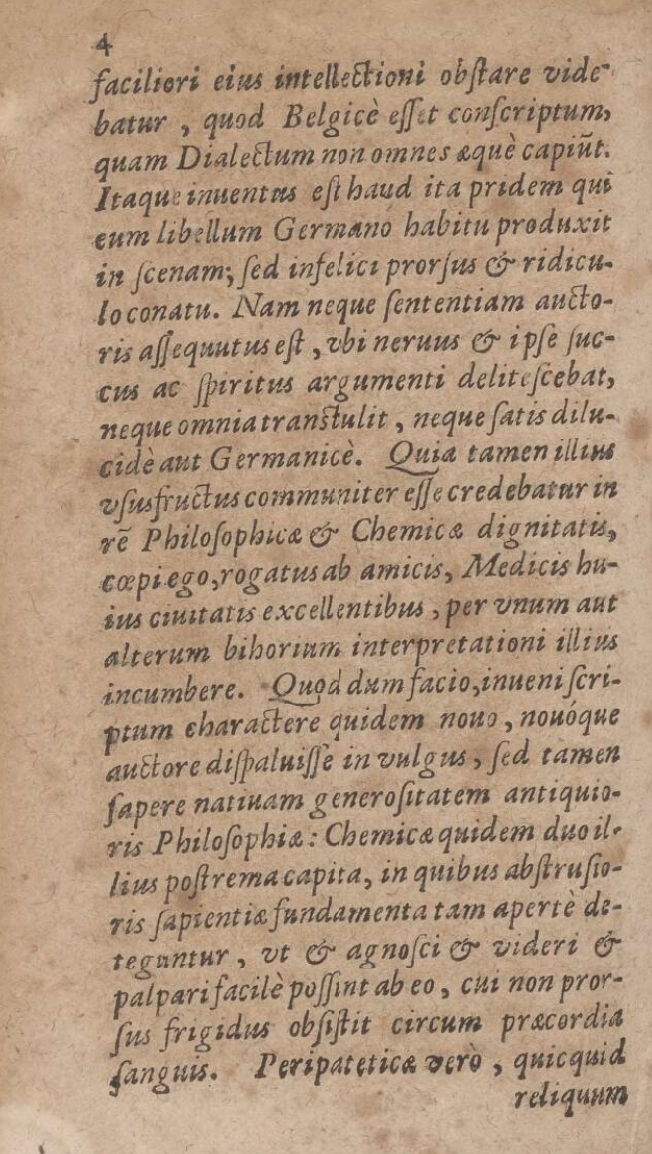 4
faciliori eius intellectioni obſtare vide-
batur , quod Belgicè eſſet conſcriptum,
quam Dialectum non omnes æquè capiūt.
Itaque inuentus eſt haud ita pridem qui
eum libellum Germano habitu produxit
in ſcenam; ſed infelici prorſus & ridicu-
lo conatu. Nam neque ſententiam aucto-
ris aſſequutus eſt , vbi neruus & ipſe ſuc-
cus ac ſpiritus argumenti deliteſcebat,
neque omnia tranſtulit , neque ſatis dilu-
cidè aut Germanicè. Quia tamen illius
vſusfructus communiter eſſe credebatur in
rē Philoſophicæ & Chemicæ dignitatis,
cœpi ego, rogatus ab amicis, Medicis hu-
ius ciuitatis excellentibus , per vnum aut
alterum bihorium interpretationi illius
incumbere. Quod dum facio, inueni ſcri-
ptum charactere quidem nouo , nouóque
auctore diſpaluiſſe in vulgus , ſed tamen
ſapere natiuam generoſitatem antiquio-
ris Philoſophiæ : Chemicæ quidem duo il-
lius poſtrema capita, in quibus abſtruſio-
ris ſapientiæ fundamenta tam apertè de-
teguntur , vt & agnoſci & videri &
palpari facilè poſſint ab eo , cui non pror-
ſus frigidus obſiſtit circum præcordia
ſanguis. Peripateticæ verò , quicquid
reliquum